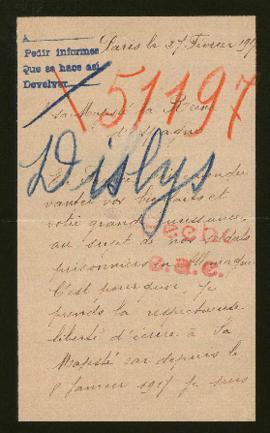 A
Pedir informes
Que se hace así
Devolver
Paris le 27 Février 191
51197
sa Majesté la Reine
d'Espagne
Dislys
vanter vos bienfaits et
votre grande puissance
au sujet de nos soldats
prisonniers en Allemagne
C'est pourquoi je
prends la respectueuse
liberté d'écrire à Sa
Majesté car depuis le
8 Janvier 1917 je suis